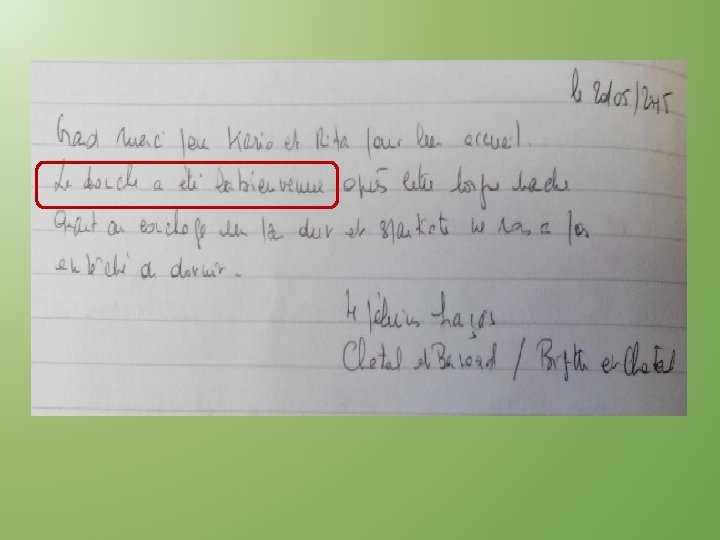 le 20/05/2015
Grand merci pour Mario et Rita pour leur accueil.
La douche a été la bienvenue après cette longue marche
Quant au couchage un peu dur et spartiate ne nous a pas
empêché de dormir.
4 pélerins français
Chatal et Bernard / Brigitte et Chatal